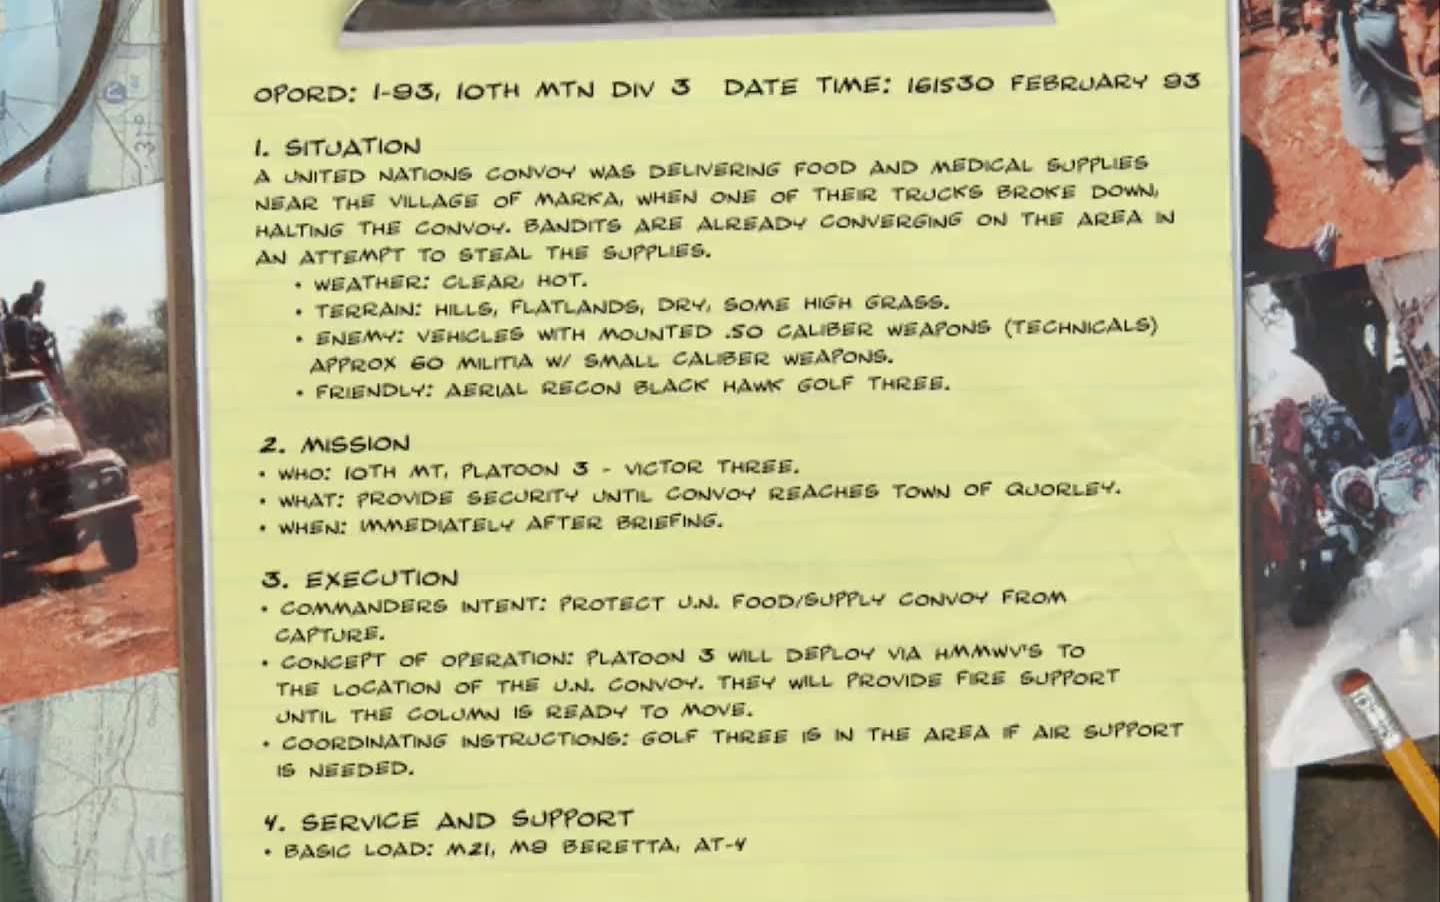 OPORD: 1-93, 10TH MTN DIV 3 DATE TIME: 161530 FEBRUARY 93
1. SITUATION
A UNITED NATIONS CONVOY WAS DELIVERING FOOD AND MEDICAL SUPPLIES
NEAR THE VILLAGE OF MARKA, WHEN ONE OF THEIR TRUCKS BROKE DOWN,
HALTING THE CONVOY. BANDITS ARE ALREADY CONVERGING ON THE AREA IN
AN ATTEMPT TO STEAL THE SUPPLIES.
• WEATHER: CLEAR, HOT.
• TERRAIN: HILLS, FLATLANDS, DRY, SOME HIGH GRASS.
• ENEMY: VEHICLES WITH MOUNTED .50 CALIBER WEAPONS (TECHNICALS)
APPROX 60 MILITIA W/ SMALL CALIBER WEAPONS.
• FRIENDLY: AERIAL RECON BLACK HAWK GOLF THREE.
2. MISSION
• WHO: 10TH MT, PLATOON 3 - VICTOR THREE.
• WHAT: PROVIDE SECURITY UNTIL CONVOY REACHES TOWN OF QUORLEY.
• WHEN: IMMEDIATELY AFTER BRIEFING.
3. EXECUTION
• COMMANDERS INTENT: PROTECT U.N. FOOD/SUPPLY CONVOY FROM
CAPTURE.
• CONCEPT OF OPERATION: PLATOON 3 WILL DEPLOY VIA HMMWV'S TO
THE LOCATION OF THE U.N. CONVOY. THEY WILL PROVIDE FIRE SUPPORT
UNTIL THE COLUMN IS READY TO MOVE.
• COORDINATING INSTRUCTIONS: GOLF THREE IS IN THE AREA IF AIR SUPPORT
IS NEEDED.
4. SERVICE AND SUPPORT
• BASIC LOAD: M21, M9 BERETTA, AT-4